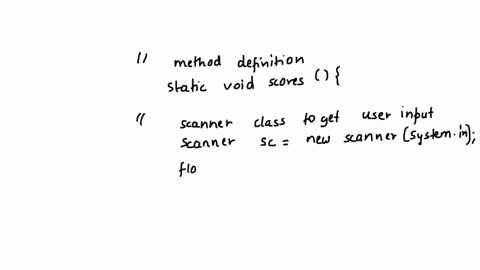 // method definition
static void scores () {
// scanner class to get user input
scanner sc = new scanner (system.in);
flo